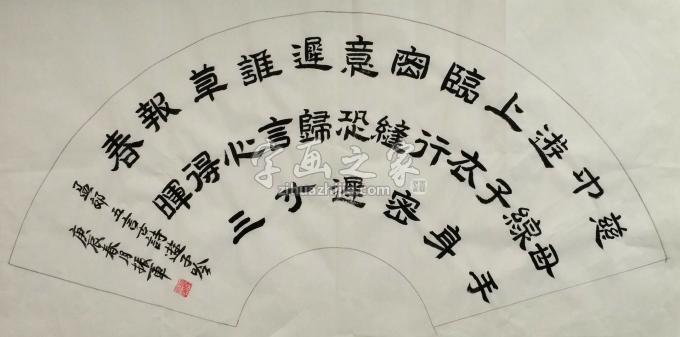 慈母手
中線
遊子身
上衣
臨行密
密縫
意恐遲
遲歸
誰言寸
草心
報得三
春暉
孟郊五言古詩遊子吟
庚辰春月振軍
字画之家
zihuazhijia.com